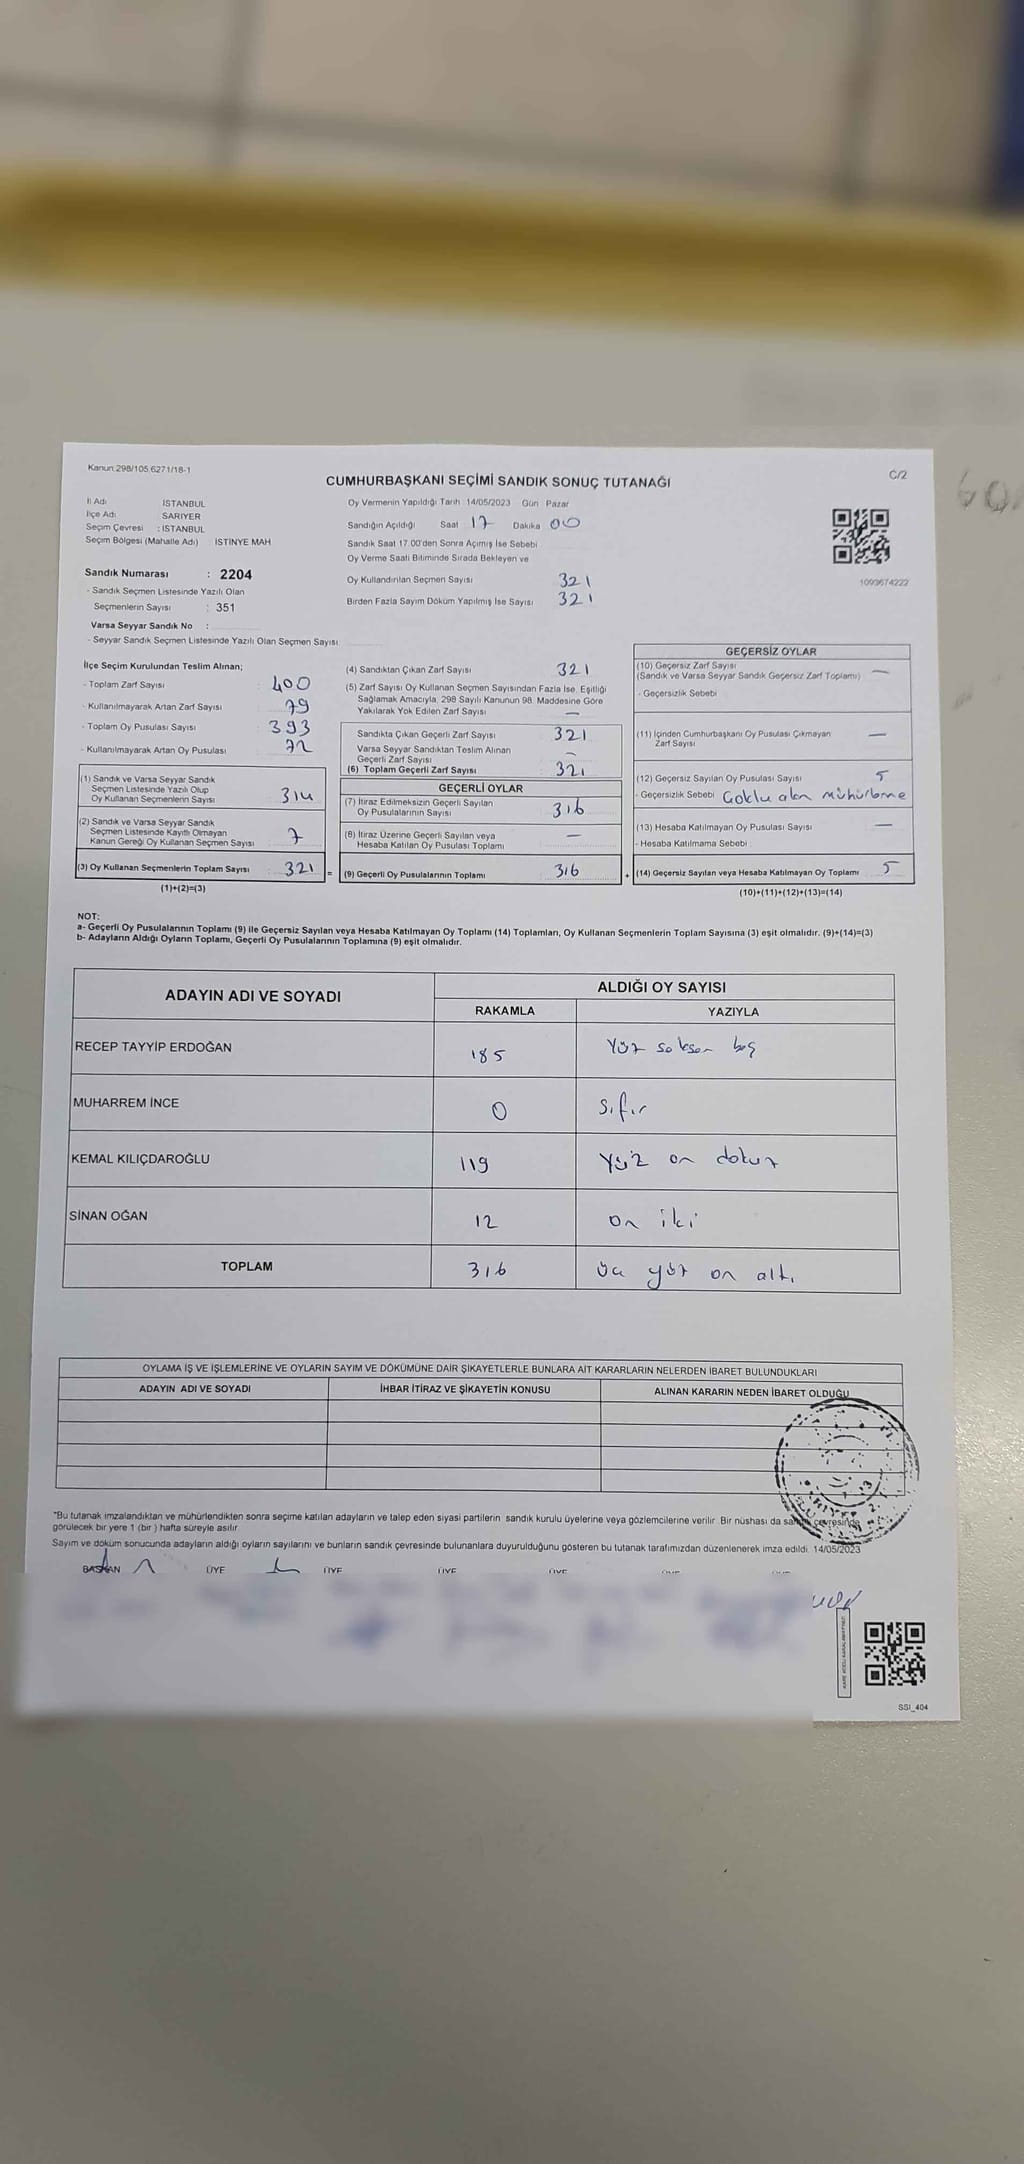 Kanun 298/105,6271/18-1
C/2
CUMHURBAŞKANI SEÇİMİ SANDIK SONUÇ TUTANAĞI
İl Adı : İSTANBUL
İlçe Adı : SARIYER
Seçim Çevresi : İSTANBUL
Seçim Bölgesi (Mahalle Adı) İSTİNYE MAH
Oy Vermenin Yapıldığı Tarih 14/05/2023 Gün Pazar
Sandığın Açıldığı Saat 17 Dakika 00
Sandık Saat 17.00'den Sonra Açımış İse Sebebi
Oy Verme Saati Bitiminde Sırada Bekleyen ve
Oy Kullandırılan Seçmen Sayısı 321
Birden Fazla Sayım Döküm Yapılmış İse Sayısı 321
1093674222
Sandık Numarası : 2204
- Sandık Seçmen Listesinde Yazılı Olan
Seçmenlerin Sayısı : 351
Varsa Seyyar Sandık No :
- Seyyar Sandık Seçmen Listesinde Yazılı Olan Seçmen Sayısı
İlçe Seçim Kurulundan Teslim Alınan;
- Toplam Zarf Sayısı : 400
- Kullanılmayarak Artan Zarf Sayısı : 79
- Toplam Oy Pusulası Sayısı : 393
- Kullanılmayarak Artan Oy Pusulası 72
(1) Sandık ve Varsa Seyyar Sandık
Seçmen Listesinde Yazılı Olup
Oy Kullanan Seçmenlerin Sayısı : 314
(2) Sandık ve Varsa Seyyar Sandık
Seçmen Listesinde Kayıtlı Olmayan
Kanun Gereği Oy Kullanan Seçmen Sayısı 7
(3) Oy Kullanan Seçmenlerin Toplam Sayısı : 321 =
(1)+(2)=(3)
(4) Sandıktan Çıkan Zarf Sayısı 321
(5) Zarf Sayısı Oy Kullanan Seçmen Sayısından Fazla İse, Eşitliği
Sağlamak Amacıyla, 298 Sayılı Kanunun 98. Maddesine Göre
Yakılarak Yok Edilen Zarf Sayısı —
Sandıkta Çıkan Geçerli Zarf Sayısı 321
Varsa Seyyar Sandıktan Teslim Alınan
Geçerli Zarf Sayısı —
(6) Toplam Geçerli Zarf Sayısı : 321
GEÇERLİ OYLAR
(7) İtiraz Edilmeksizin Geçerli Sayılan
Oy Pusulalarının Sayısı : 316
(8) İtiraz Üzerine Geçerli Sayılan veya
Hesaba Katılan Oy Pusulası Toplamı —
(9) Geçerli Oy Pusulalarının Toplamı : 316 +
GEÇERSİZ OYLAR
(10) Geçersiz Zarf Sayısı
(Sandık ve Varsa Seyyar Sandık Geçersiz Zarf Toplamı) —
- Geçersizlik Sebebi
(11) İçinden Cumhurbaşkanı Oy Pusulası Çıkmayan
Zarf Sayısı —
(12) Geçersiz Sayılan Oy Pusulası Sayısı 5
- Geçersizlik Sebebi Çoklu alan mühürleme
(13) Hesaba Katılmayan Oy Pusulası Sayısı —
- Hesaba Katılmama Sebebi
(14) Geçersiz Sayılan veya Hesaba Katılmayan Oy Toplamı 5
(10)+(11)+(12)+(13)=(14)
NOT:
a- Geçerli Oy Pusulalarının Toplamı (9) ile Geçersiz Sayılan veya Hesaba Katılmayan Oy Toplamı (14) Toplamları, Oy Kullanan Seçmenlerin Toplam Sayısına (3) eşit olmalıdır. (9)+(14)=(3)
b- Adayların Aldığı Oyların Toplamı, Geçerli Oy Pusulalarının Toplamına (9) eşit olmalıdır.
ADAYIN ADI VE SOYADI
ALDIĞI OY SAYISI
RAKAMLA YAZIYLA
RECEP TAYYİP ERDOĞAN 185 Yüz seksen beş
MUHARREM İNCE 0 Sıfır
KEMAL KILIÇDAROĞLU 119 Yüz on dokuz
SİNAN OĞAN 12 On iki
TOPLAM 316 Üç yüz on altı
OYLAMA İŞ VE İŞLEMLERİNE VE OYLARIN SAYIM VE DÖKÜMÜNE DAİR ŞİKAYETLERLE BUNLARA AİT KARARLARIN NELERDEN İBARET BULUNDUKLARI
ADAYIN ADI VE SOYADI İHBAR İTİRAZ VE ŞİKAYETİN KONUSU ALINAN KARARIN NEDEN İBARET OLDUĞU
*Bu tutanak imzalandıktan ve mühürlendikten sonra seçime katılan adayların ve talep eden siyasi partilerin sandık kurulu üyelerine veya gözlemcilerine verilir. Bir nüshası da sandık çevresinde
görülecek bir yere 1 (bir ) hafta süreyle asılır.
Sayım ve döküm sonucunda adayların aldığı oyların sayılarını ve bunların sandık çevresinde bulunanlara duyurulduğunu gösteren bu tutanak tarafımızdan düzenlenerek imza edildi. 14/05/2023
BAŞKAN ÜYE ÜYE ÜYE ÜYE ÜYE ÜYE
SSI_404